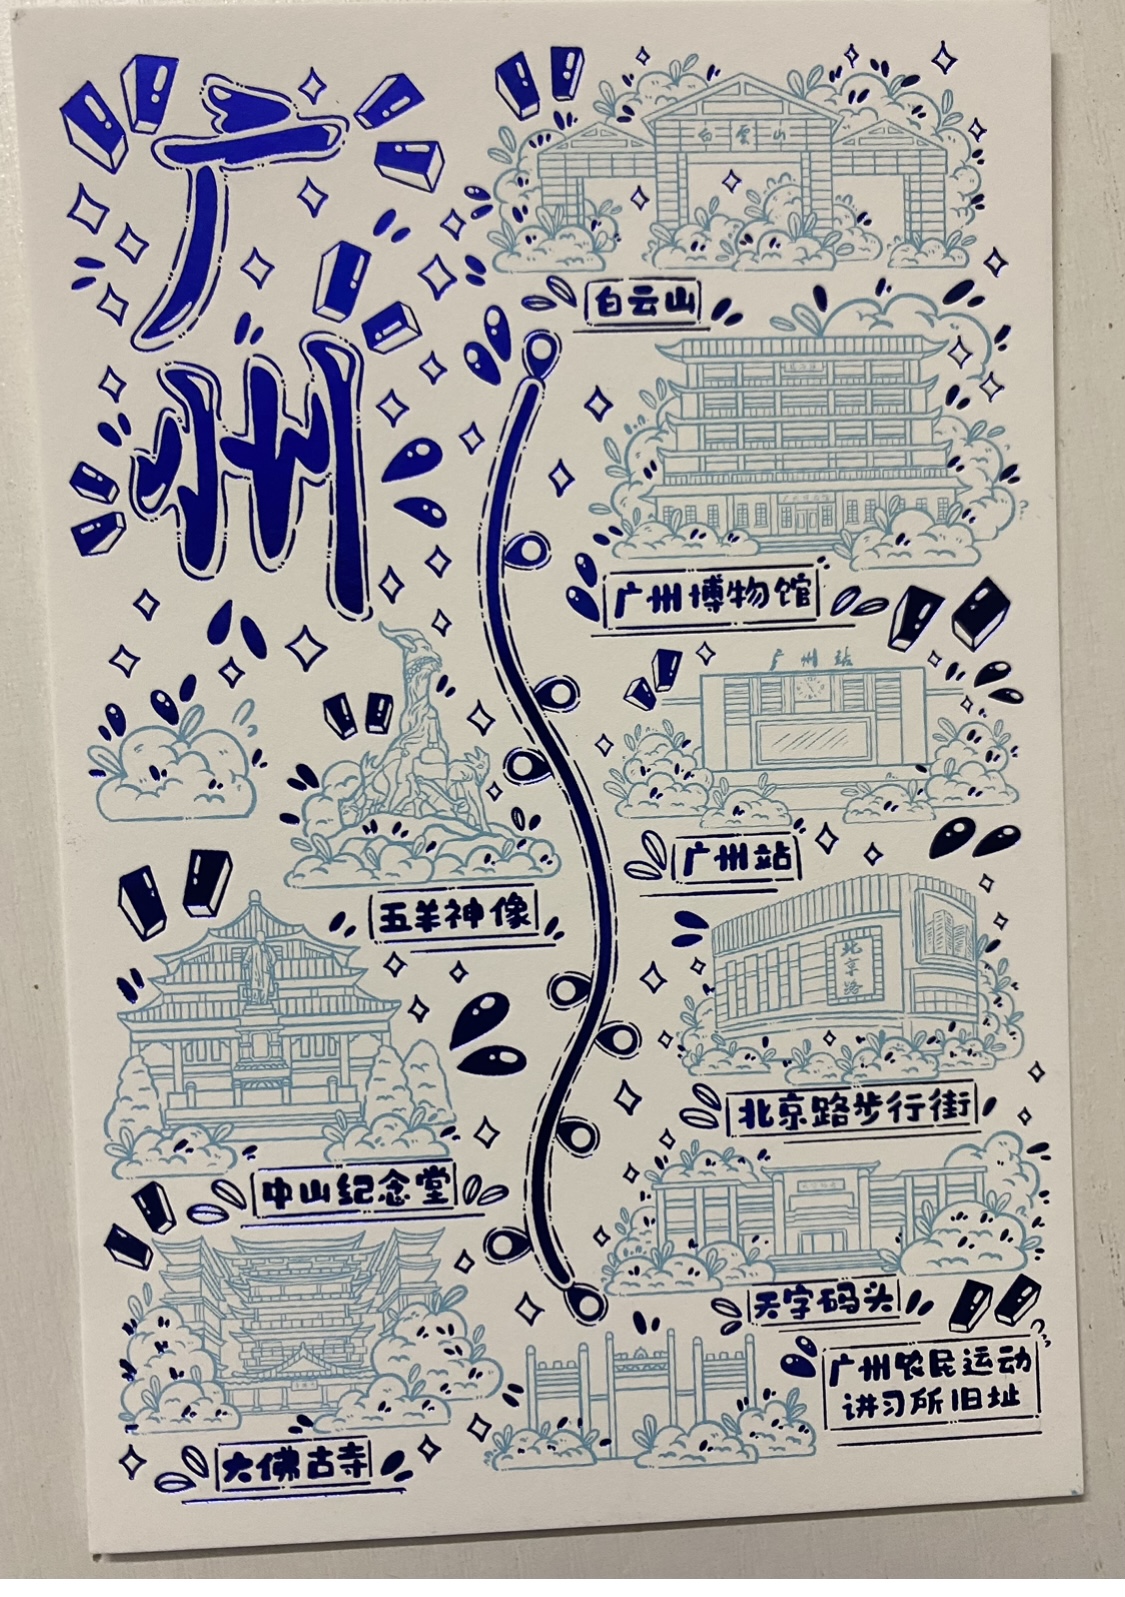 广州
白雲山
白云山
广州博物馆
广州站
广州站
五羊神像
北京路
北京路步行街
中山纪念堂
天字码头
广州农民运动
讲习所旧址
大佛古寺